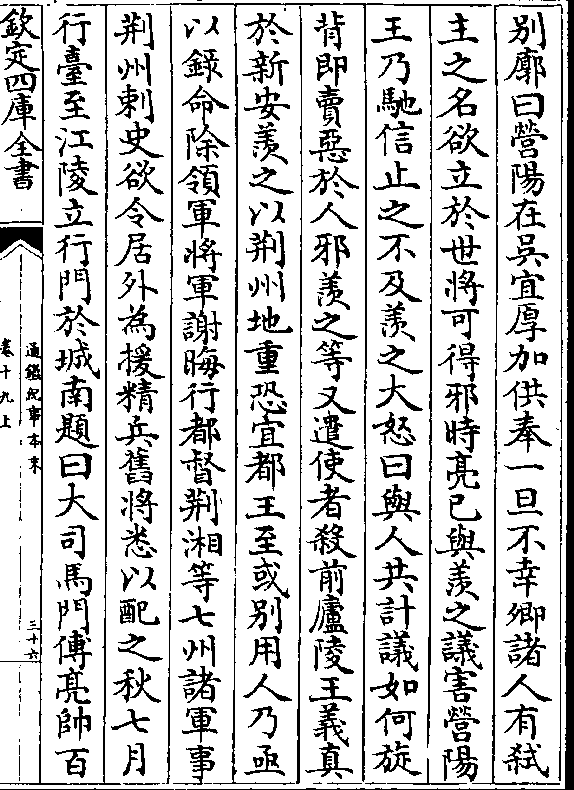 别廓曰營陽在吳宜厚加供奉一旦不幸卿諸人有弑
主之名欲立於世將可得邪時亮已與羨之議害營陽
王乃馳信止之不及羨之大怒曰與人共計議如何旋
背即賣惡於人邪羨之等又遣使者殺前廬陵王義真
於新安羨之以荆州地重恐宜都王至或别用人乃亟
以錄命除領軍將軍謝晦行都督荆湘等七州諸軍事
荆州刺史欲令居外為援精兵舊將悉以配之秋七月
行臺至江陵立行門於城南題曰大司馬門傅亮帥百
欽定四庫全書
通鑑紀事本末
卷十九上
三十六